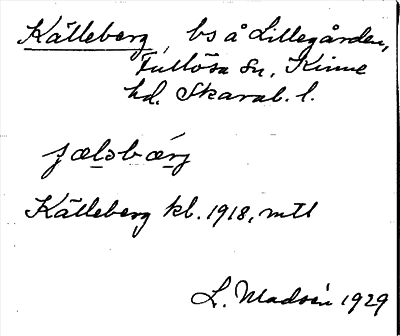 Källeberg, bs å Lillegården,
Fullösa sn, Kinne
hd. Skarab. l.
Källeberg kl. 1918, mtl
L. Madsén 1929